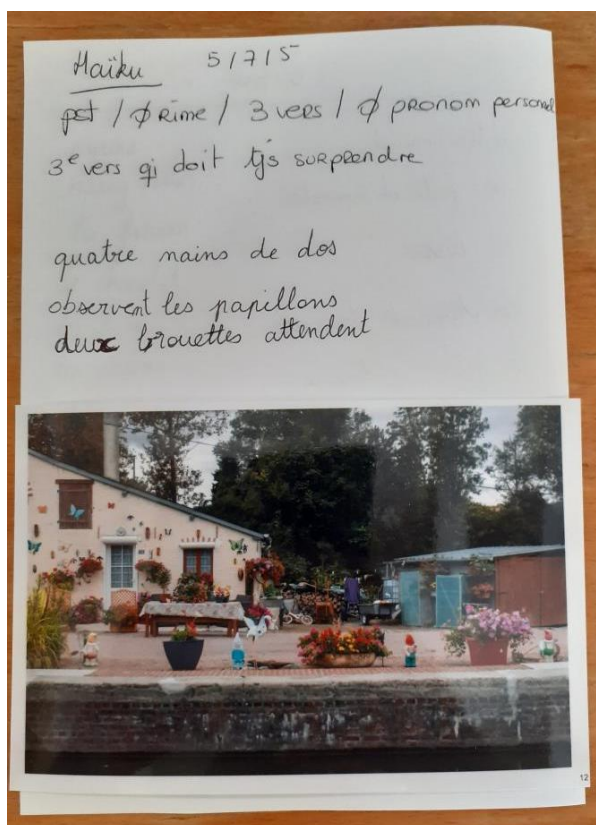 Haïku 5/7/5
pst / ∅ RIME / 3 VERS / ∅ PRONOM personnel
3e vers qi doit tjs SURPRENDRE
quatre nains de dos
observent les papillons
deux brouettes attendent
12